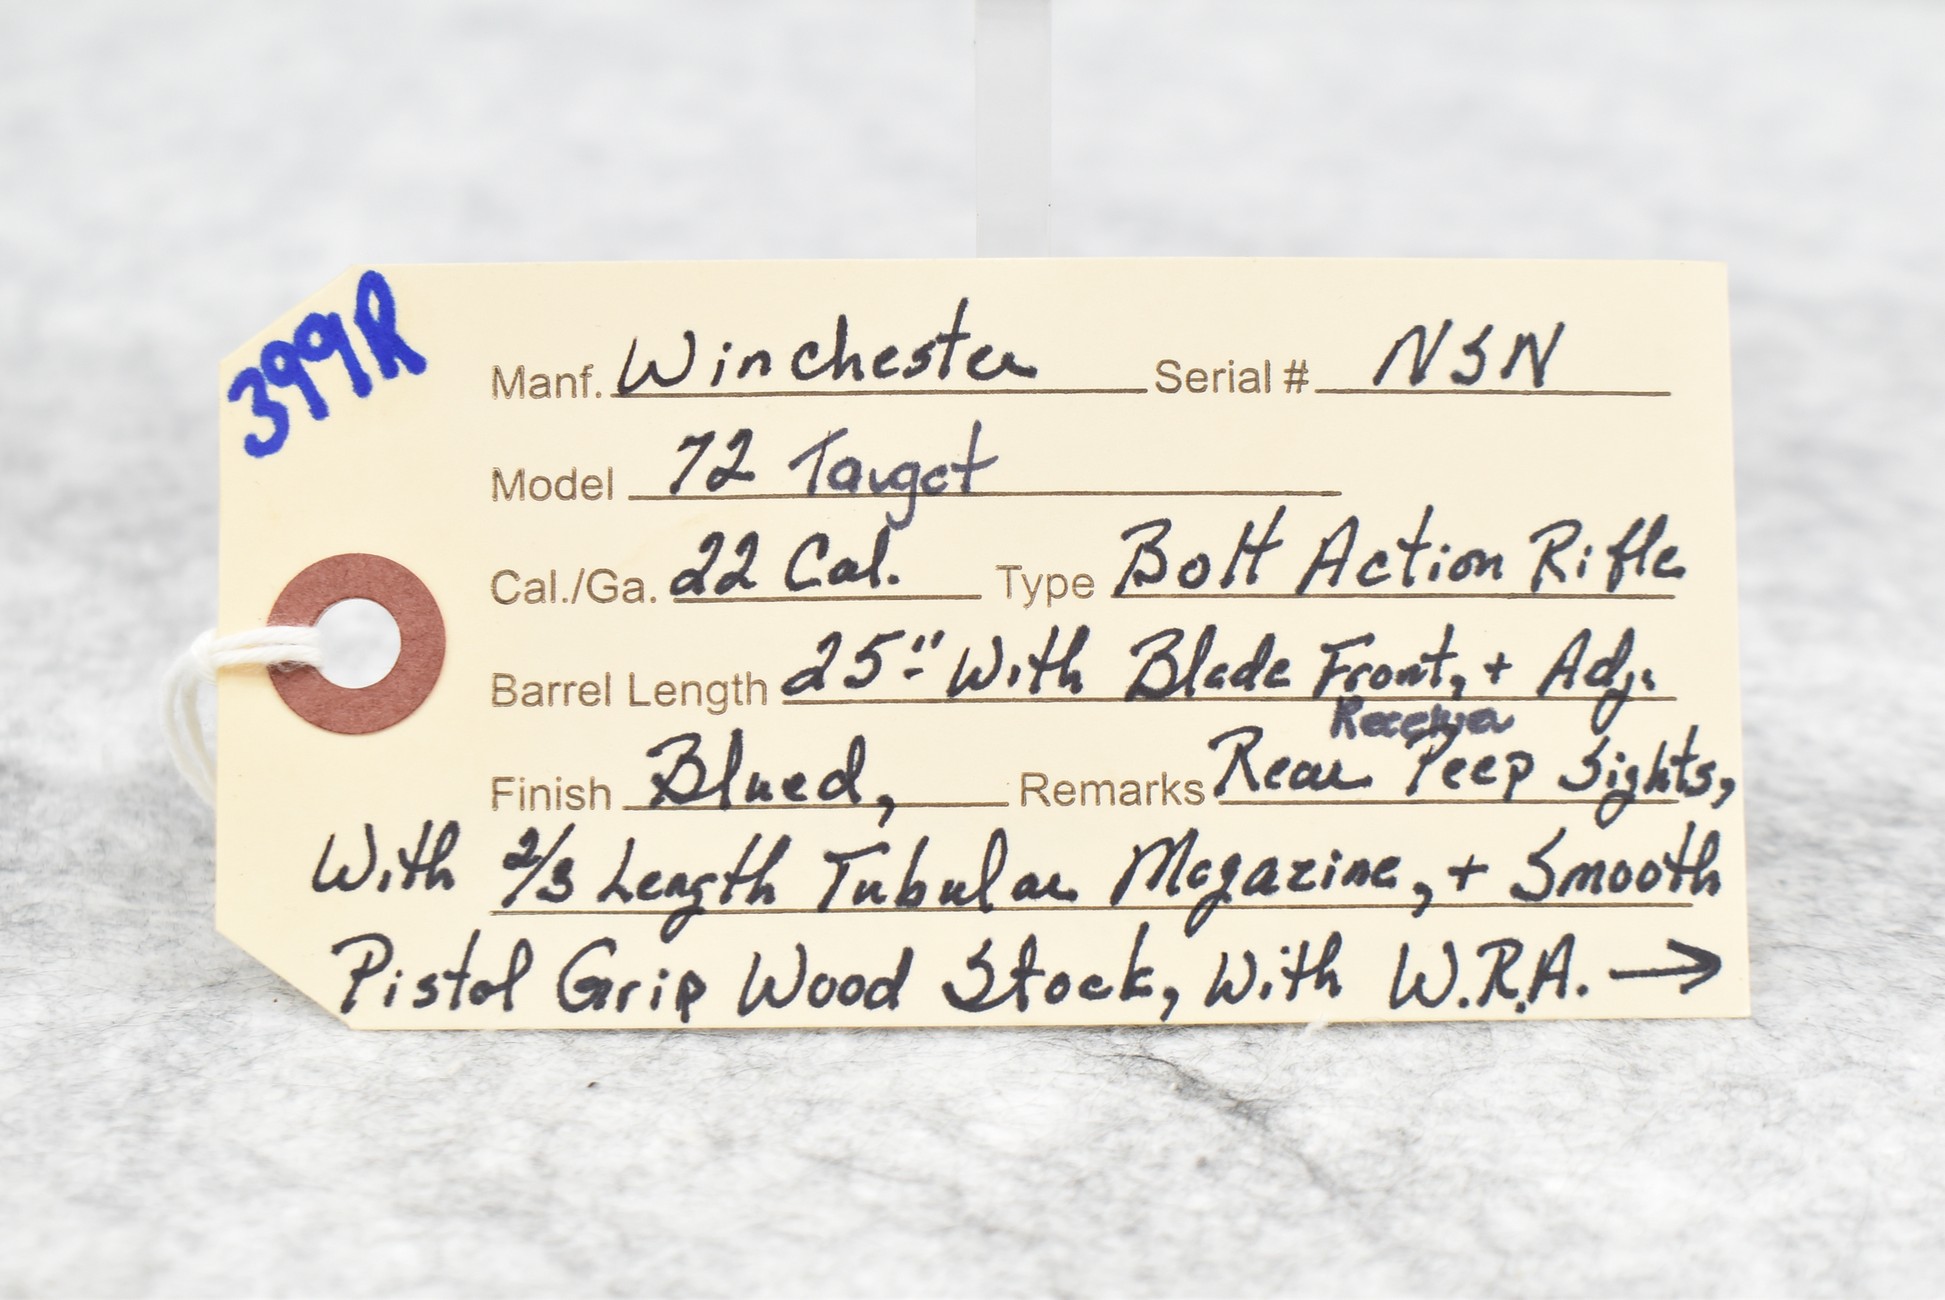 399R
Manf. Winchester Serial # NSN
Model 72 Target
Cal./Ga. 22 Cal. Type Bolt Action Rifle
Barrel Length 25" With Blade Front, + Adj.
Receiver
Finish Blued, Remarks Rear Peep Sights,
With 2/3 Length Tubular Magazine, + Smooth
Pistol Grip Wood Stock, With W.R.A. →